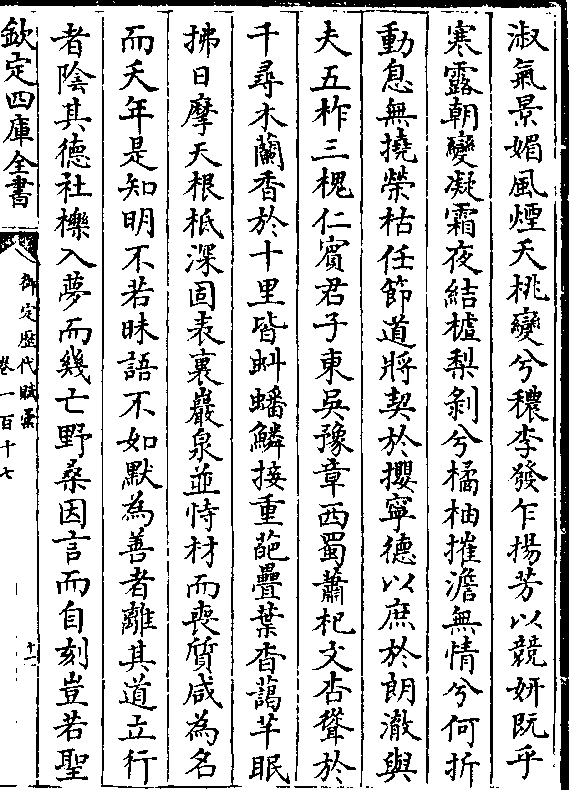 淑氣景媚風煙夭桃變兮穠李發乍揚芳以競妍既乎
寒露朝變凝霜夜結樝梨剝兮橘柚摧澹無情兮何折
動息無撓榮枯任節道將契於攖寧德以庶於朗澈與
夫五柞三槐仁賓君子東吳豫章西蜀蕭杞文杏聳於
千尋木蘭香於十里皆虯蟠鱗接重葩疊葉杳藹芊眠
拂日摩天根柢深固表裏巖泉並恃材而喪質咸為名
而夭年是知明不若昧語不如默為善者離其道立行
者陰其德社櫟入夢而幾亡野桑因言而自刻豈若聖
欽定四庫全書
御定歷代賦彙
卷一百十七
十二